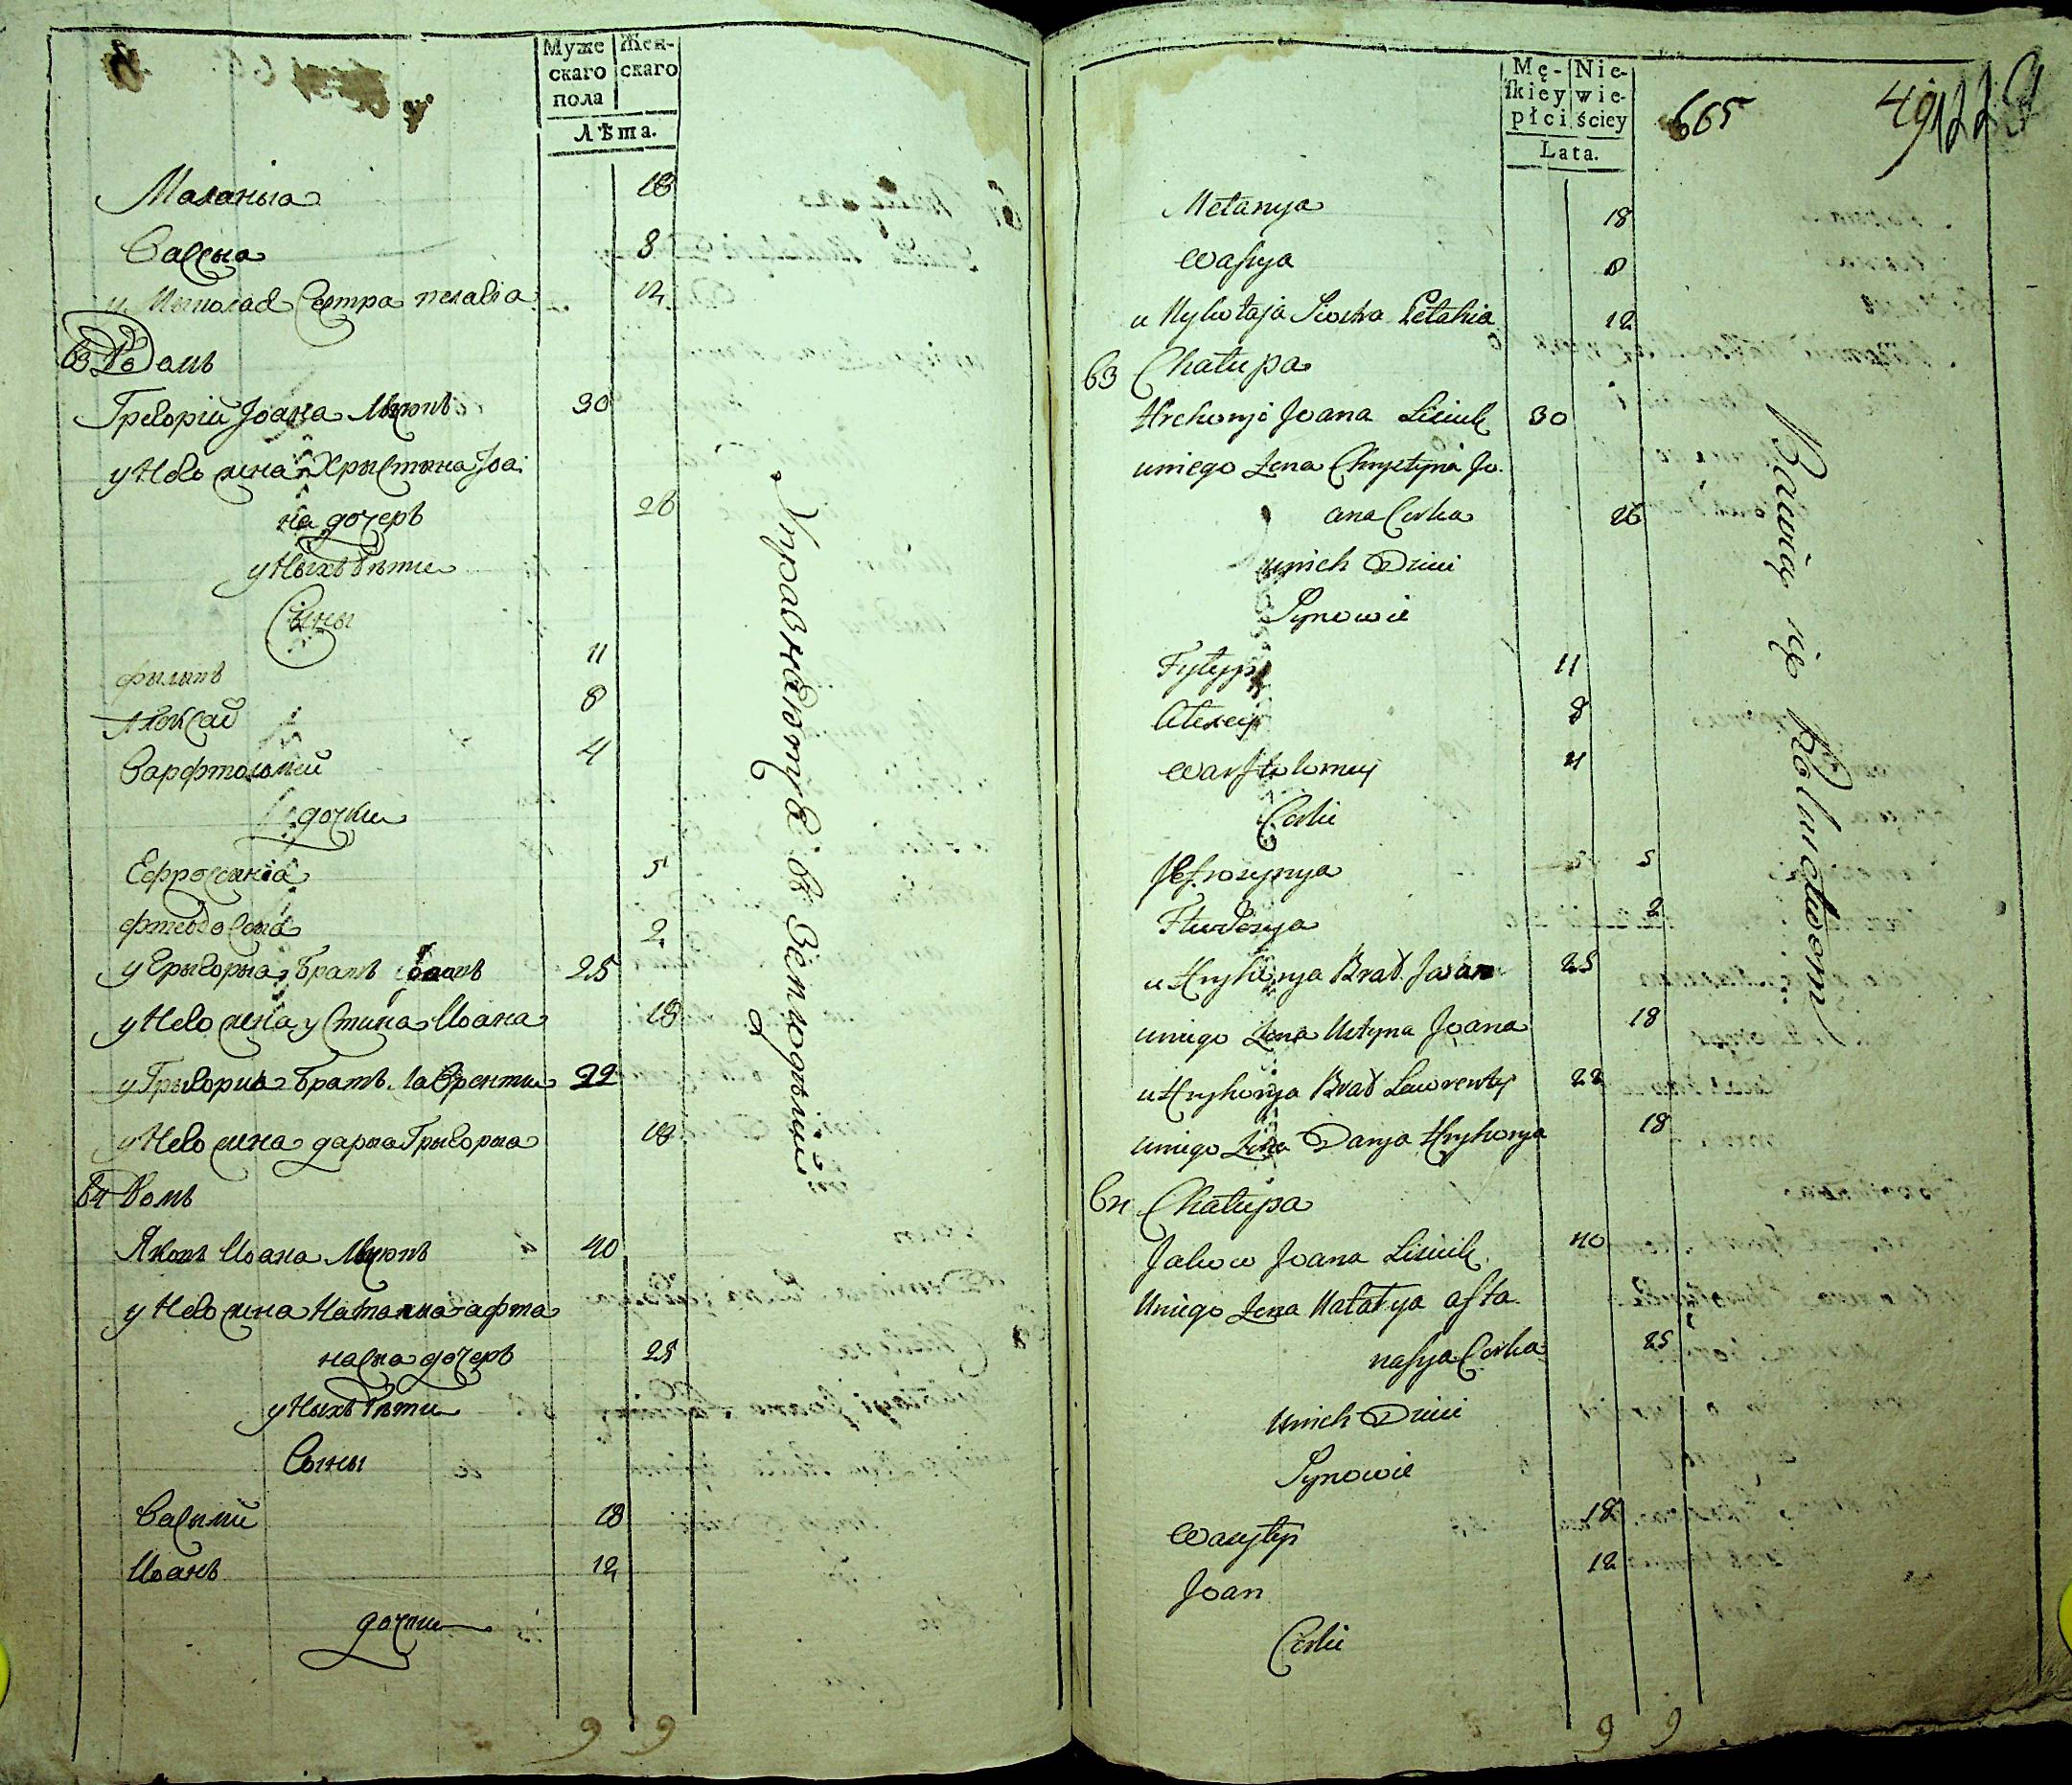 Муже
скаго
пола
Жен-
скаго
Лѣта.
Маланыа 18
Васыа 8
у Мыколаѣ Сестра пелавіа 12
63 Домъ
Грегорій Јоана Лысюкъ 30
у Него жена Хрыстына Јоа
на дочеръ 26
у Ныхъ Дѣти
Сыны
Филыпъ 11
Алексай 8
Варфтоломый 4
дочки
Ефросыніа 5
Фтеодосыа 2
у Грыгорыа братъ Јоанъ 25
у Него жена устина Иоана 18
у Грыгорыа братъ Лаврентый 22
у Него жена дарыа Грыгорыа 18
64 Домъ
Яковъ Иоана Лысюкъ 40
у Него жена Наталиа афта
насыа дочеръ 25
у Ныхъ Дѣти
Сыны
Васылий 18
Иоанъ 12
дочки
Упражнѣютце въ Земледѣлии
9 9
Mę-
skiey
płci
Nie-
wie-
ściey
Lata.
665
Mełanya 18
Wassya 8
u Mykołaja Siostra Pełahia 12
63 Chałupa
Hrehorji Joana Lisiuk 30
uniego Zona Chrystyna Jo.
ana Corka 26
unich Dzieci
Synowie
Fyłypp 11
Alexey 8
Warftołomiy 4
Corki
Jefrozynya 5
Ftedosya 2
u Hryhorya Brat Joan 25
uniego Zona Ustyna Joana 18
u Hryhorya Brat Lawrenty 22
uniego Zona Darya Hryhorya 18
64 Chałupa
Jakow Joana Lisiuk 40
Uniego Zona Natalya Afta
nasya Corka 25
Unich Dzieci
Synowie
Wasyłyi 18
Joan 12
Corki
Bawią się Rolnictwom
9 9